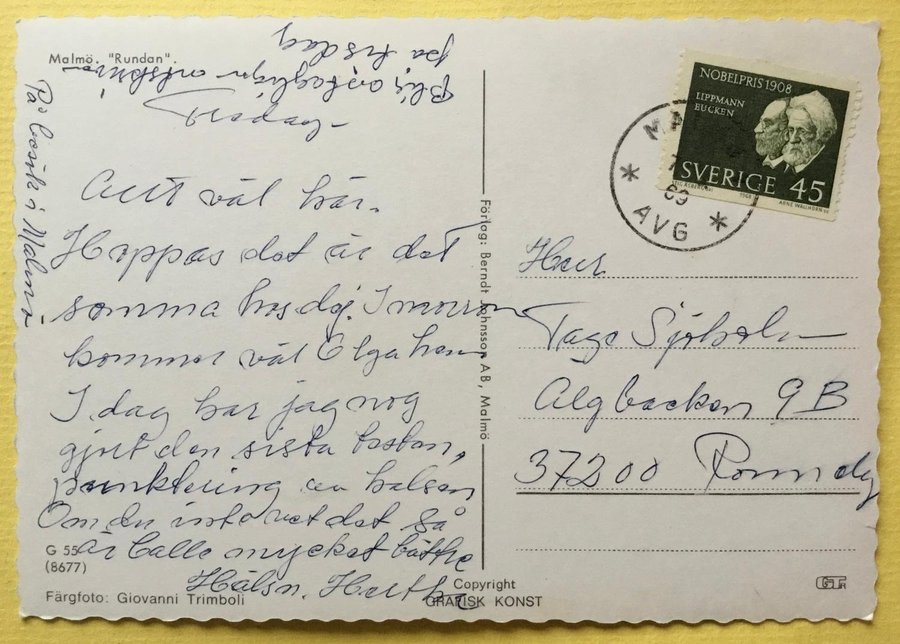 Malmö. "Rundan".
Allt väl här.
Hoppas det är det
samma hos dig. I morron
kommer väl Olga hem
I dag har jag nog
gjort den sista testen,
punktering av halsen
Om du inte vet det så
är Calle mycket bättre
Hälsn. Hertha
På besök i Malmö
på tisdag
G 55
(8677)
Färgfoto: Giovanni Trimboli
Förlag: Berndt Johnsson AB, Malmö
Copyright
GRAFISK KONST
NOBELPRIS 1908
LIPPMANN
EUCKEN
SVERIGE 45
1968
ARNE WALLHORN SC
7
69
AVG
Herr
Tage Sjöholm
Älgbacken 9B
37200 Ronneby